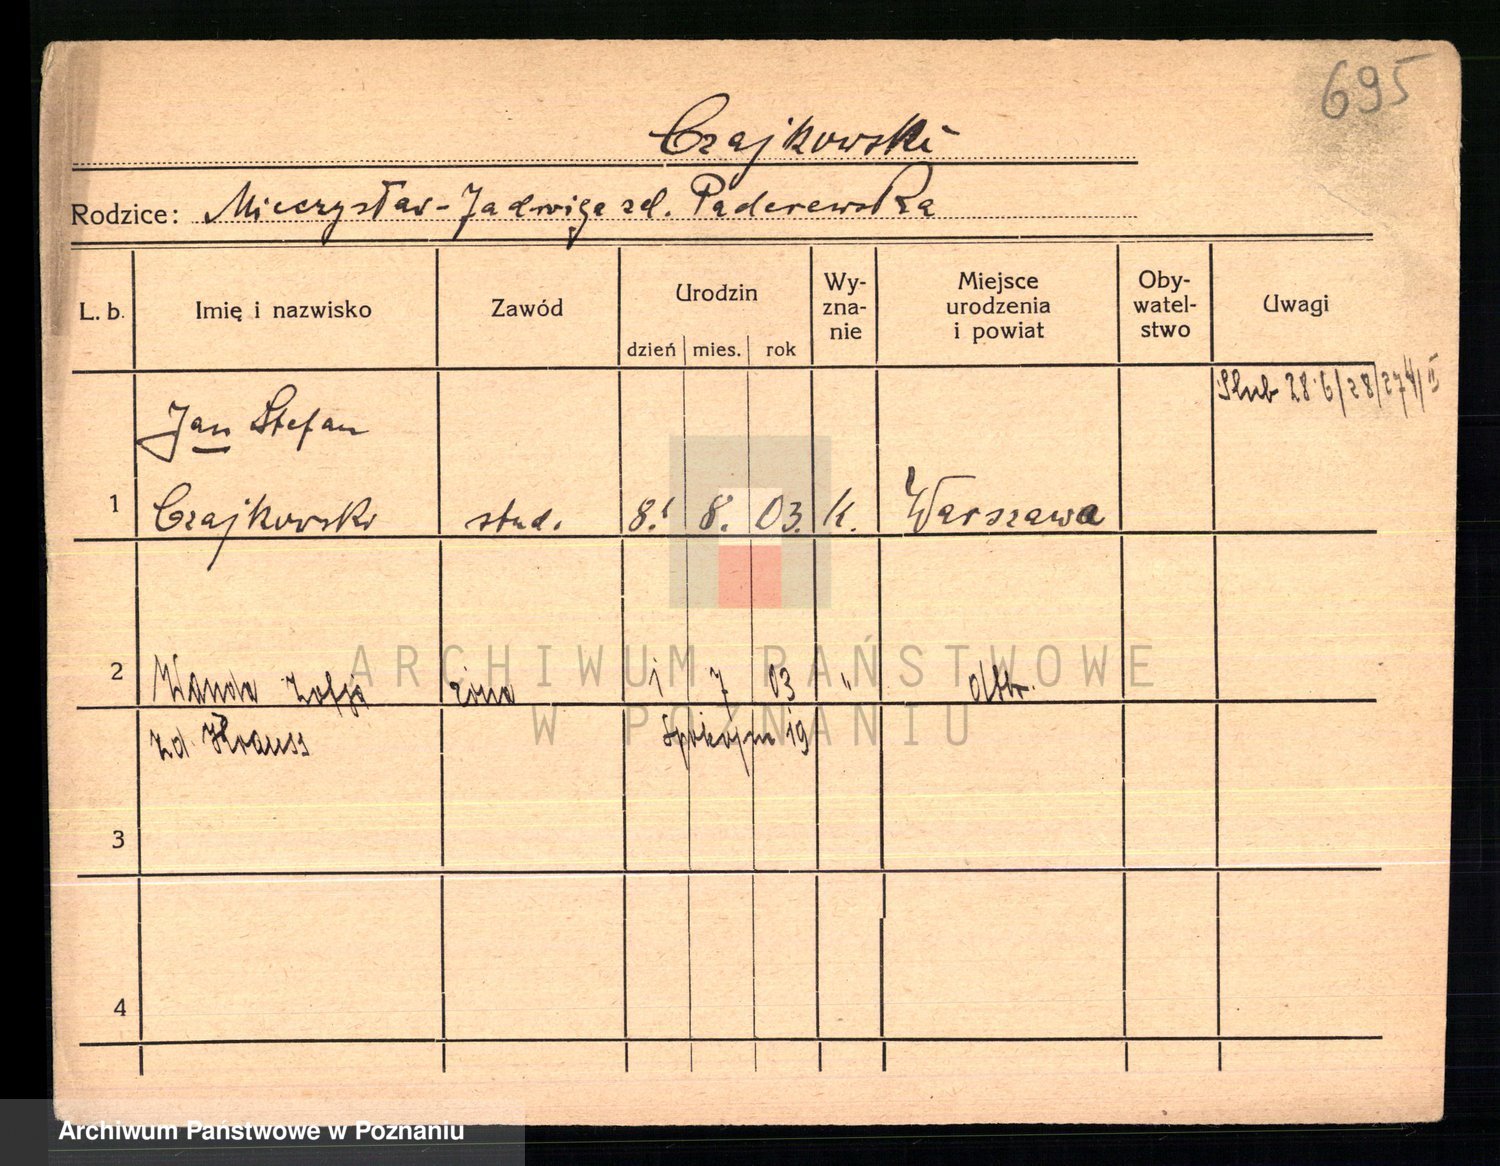 695
Czajkowski
Rodzice: Mieczysław - Jadwiga zd. Paderewska
L. b. Imię i nazwisko Zawód Urodzin Wy-zna-nie Miejsce urodzenia i powiat Oby-watel-stwo Uwagi
dzień mies. rok
Ślub 28.6/28/274/II
Jan Stefan
1 Czajkowski stud. 8. 8. 03. k. Warszawa
2 Wanda Zofja żona 1 7 03 "
zd. Krauss Spokojna 19
3
4
ARCHIWUM PAŃSTWOWE
W POZNANIU
Archiwum Państwowe w Poznaniu